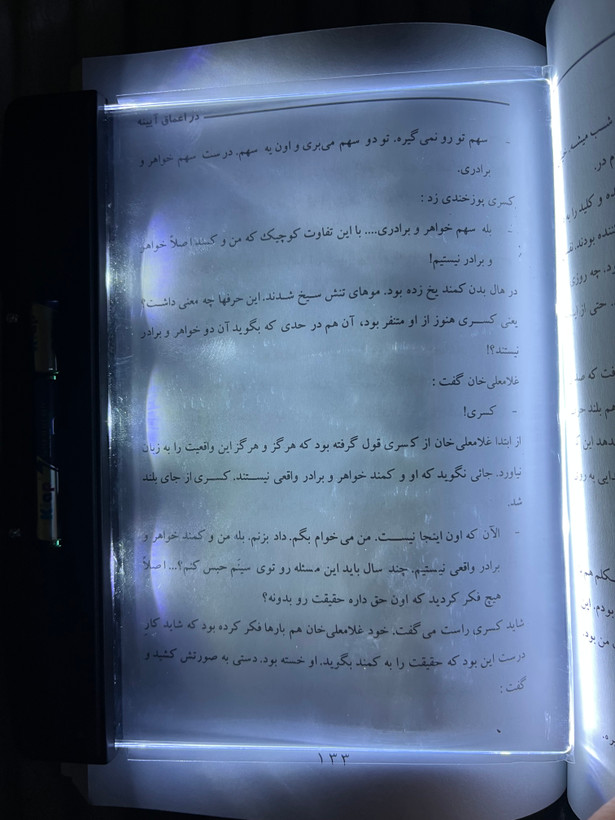 در اعماق آیینه
- سهم تو رو نمی‌گیره. تو دو سهم می‌بری و اون یه سهم. درست سهم خواهر و
برادری.
کسری پوزخندی زد :
- بله سهم خواهر و برادری.... با این تفاوت کوچیک که من و کمند اصلاً خواهر
و برادر نیستیم!
در هال بدن کمند یخ زده بود. موهای تنش سیخ شدند. این حرفها چه معنی داشت؟
یعنی کسری هنوز از او متنفر بود، آن هم در حدی که بگوید آن دو خواهر و برادر
نیستند؟!
غلامعلی‌خان گفت :
- کسری!
از ابتدا غلامعلی‌خان از کسری قول گرفته بود که هرگز و هرگز این واقعیت را به زبان
نیاورد. جائی نگوید که او و کمند خواهر و برادر واقعی نیستند. کسری از جای بلند
شد.
- الآن که اون اینجا نیست. من می‌خوام بگم. داد بزنم. بله من و کمند خواهر و
برادر واقعی نیستیم. چند سال باید این مسئله رو توی سینَم حبس کنم؟... اصلاً
هیچ فکر کردید که اون حق داره حقیقت رو بدونه؟
شاید کسری راست می‌گفت. خود غلامعلی‌خان هم بارها فکر کرده بود که شاید کار
درست این بود که حقیقت را به کمند بگوید. او خسته بود. دستی به صورتش کشید و
گفت :
۱۳۳